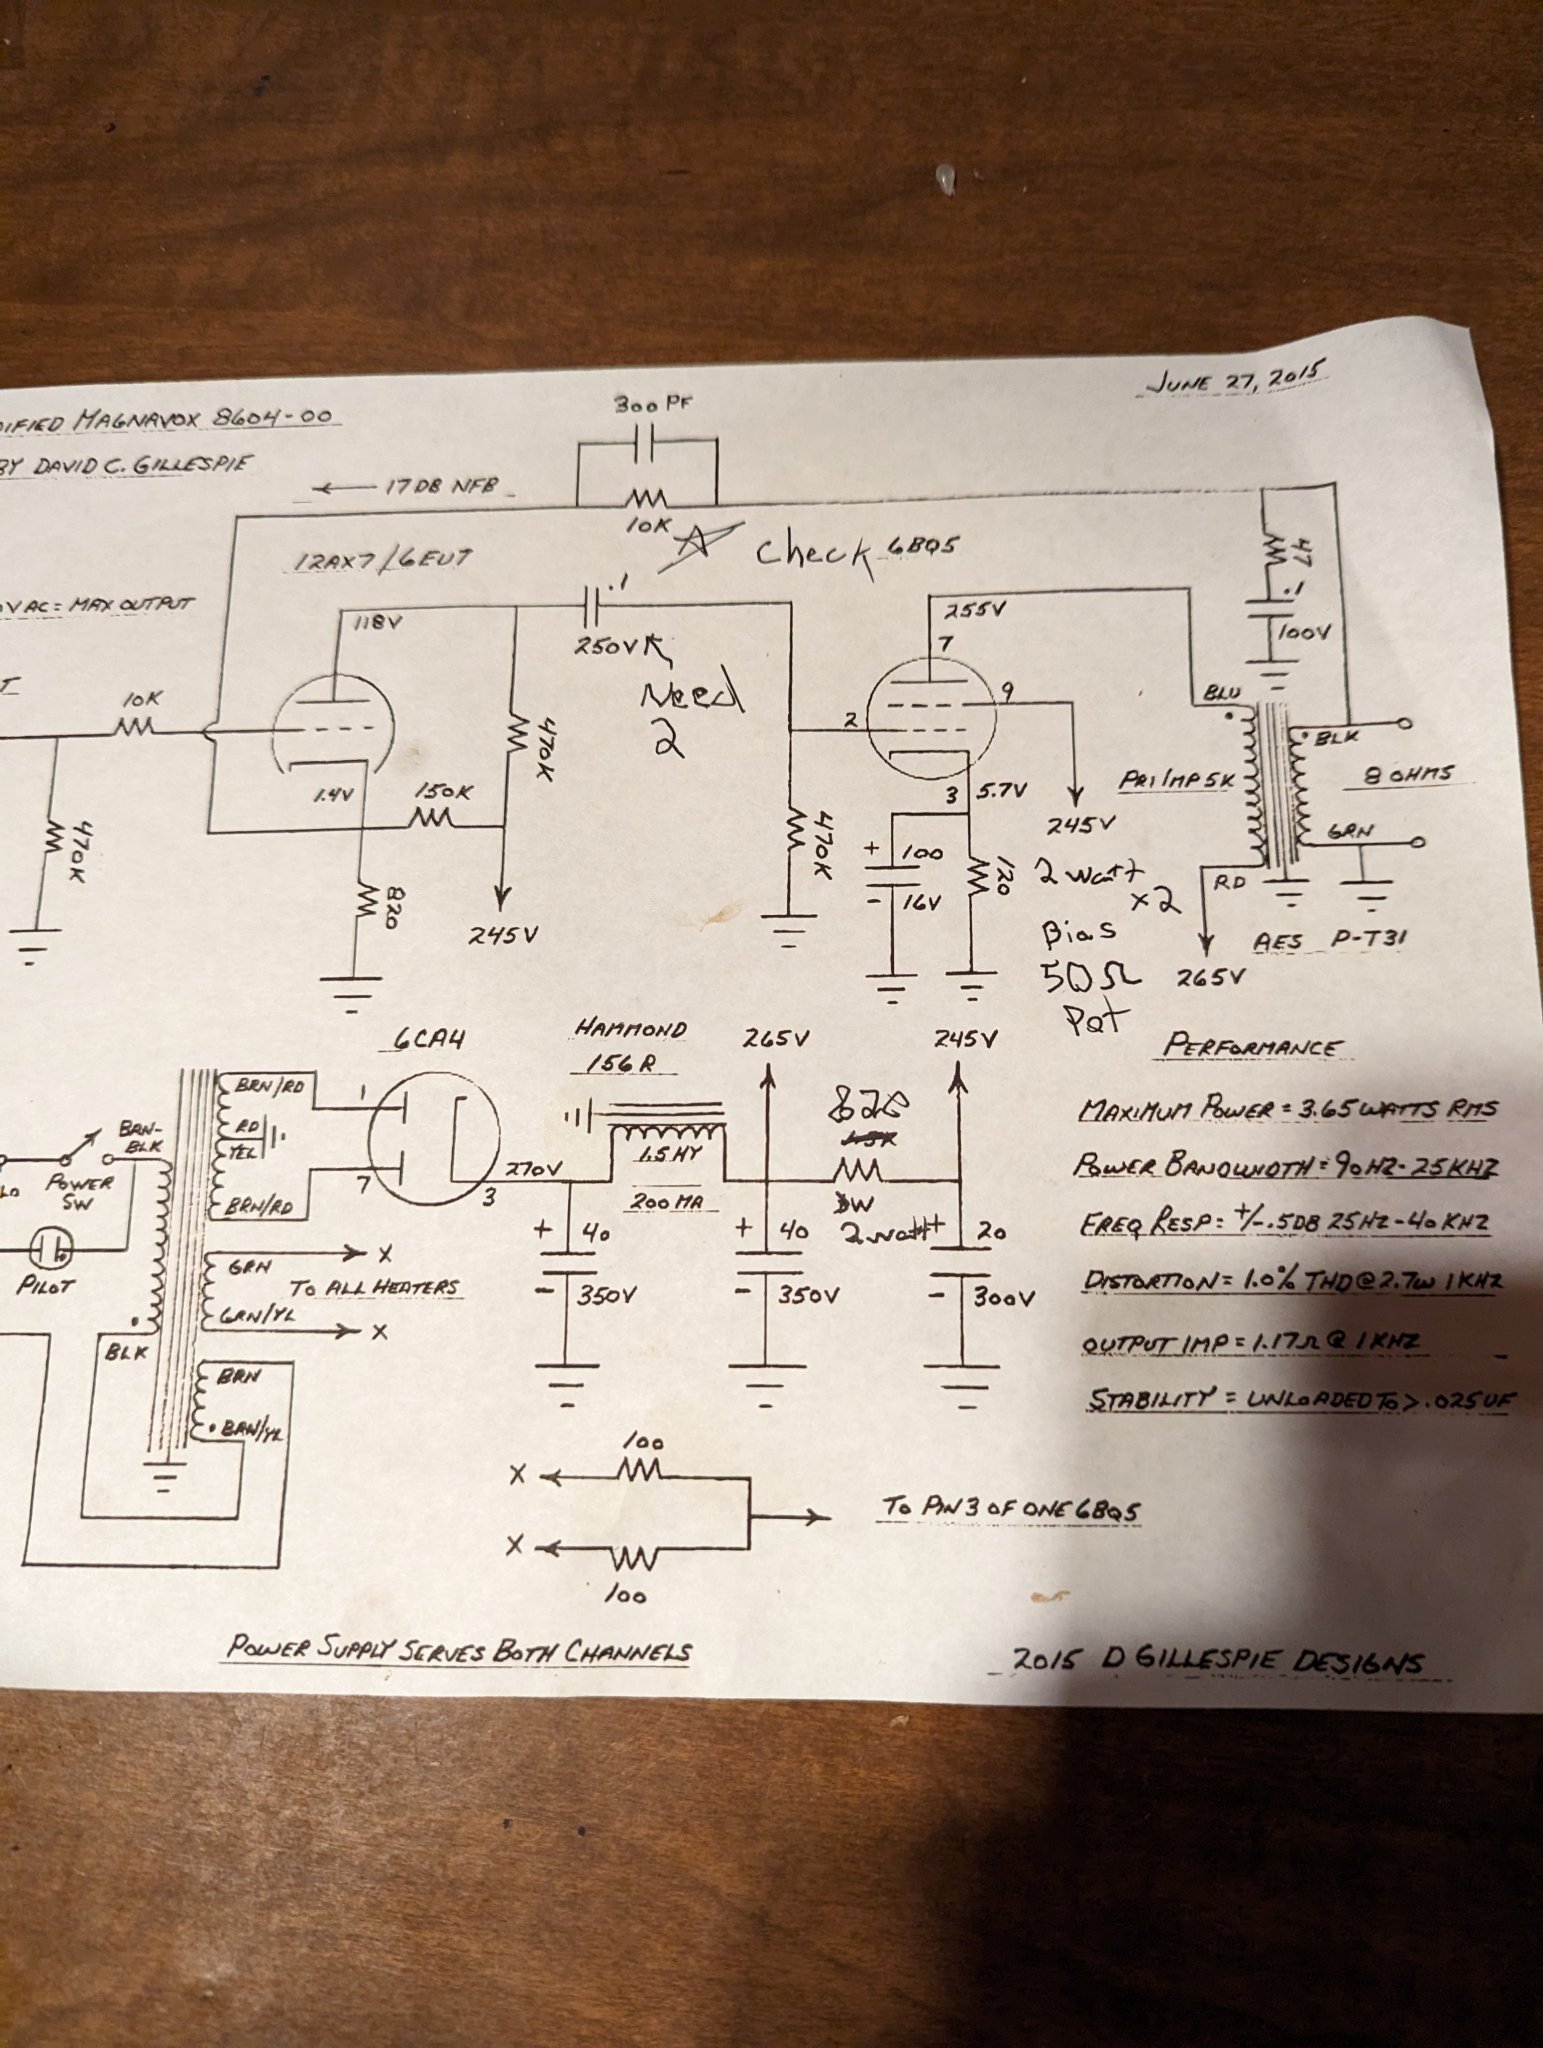 JUNE 27, 2015
DIFIED MAGNAVOX 8604-00
BY DAVID C. GILLESPIE
300 PF
17DB NFB
10K
12AX7/6EU7
Check 6BQ5
VAC = MAX OUTPUT
118V
.1
250V
Need
2
255V
7
9
2
3
5.7V
47
.1
100V
BLU
BLK
8 OHMS
GRN
RD
PRI IMP 5K
AES P-T31
10K
470K
1.4V
150K
470K
820
245V
470K
+ 100
- 16V
120
245V
2 watt
x2
Bias
50Ω
Pot
265V
6CA4
HAMMOND
156R
265V
245V
PERFORMANCE
MAXIMUM POWER = 3.65 WATTS RMS
POWER BANDWIDTH = 90HZ-25KHZ
FREQ RESP: +/-.5DB 25HZ-40KHZ
DISTORTION = 1.0% THD @ 2.7W 1KHZ
OUTPUT IMP = 1.17Ω @ 1KHZ
STABILITY = UNLOADED TO > .025UF
BRN/RD
RD
YEL
BRN/RD
BRN-
BLK
POWER
SW
PILOT
BLK
1
7
3
270V
1.5HY
200MA
820
1.5K
W
2 watt
+ 40
- 350V
+ 40
- 350V
+ 20
- 300V
GRN
GRN/YL
X
TO ALL HEATERS
X
BRN
BRN/YL
100
X
X
100
TO PIN 3 OF ONE 6BQ5
POWER SUPPLY SERVES BOTH CHANNELS
2015 D GILLESPIE DESIGNS